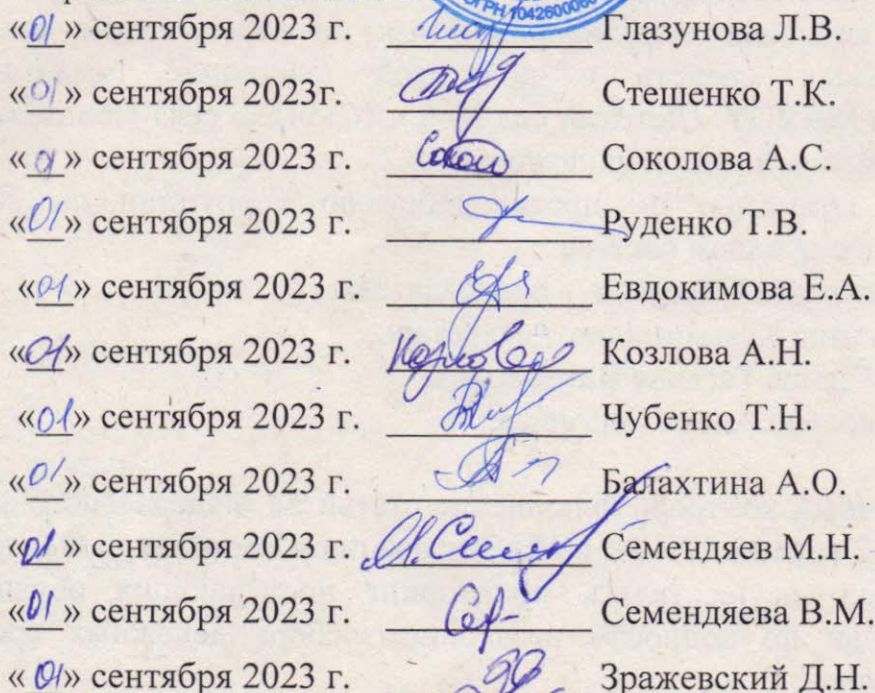 ОГРН 1042600060
«01» сентября 2023 г. Глазунова Л.В.
«01» сентября 2023г. Стешенко Т.К.
«01» сентября 2023 г. Соколова А.С.
«01» сентября 2023 г. Руденко Т.В.
«01» сентября 2023 г. Евдокимова Е.А.
«01» сентября 2023 г. Козлова А.Н.
«01» сентября 2023 г. Чубенко Т.Н.
«01» сентября 2023 г. Балахтина А.О.
«01» сентября 2023 г. Семендяев М.Н.
«01» сентября 2023 г. Семендяева В.М.
«01» сентября 2023 г. Зражевский Д.Н.